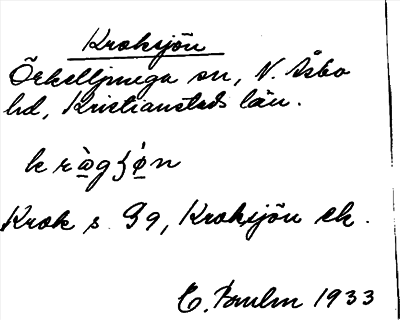 Kroksjön
Örkelljunga sn, N. Åsbo
hd, Kristianstads län.
Krok s. 99, Kroksjön ek.
1933